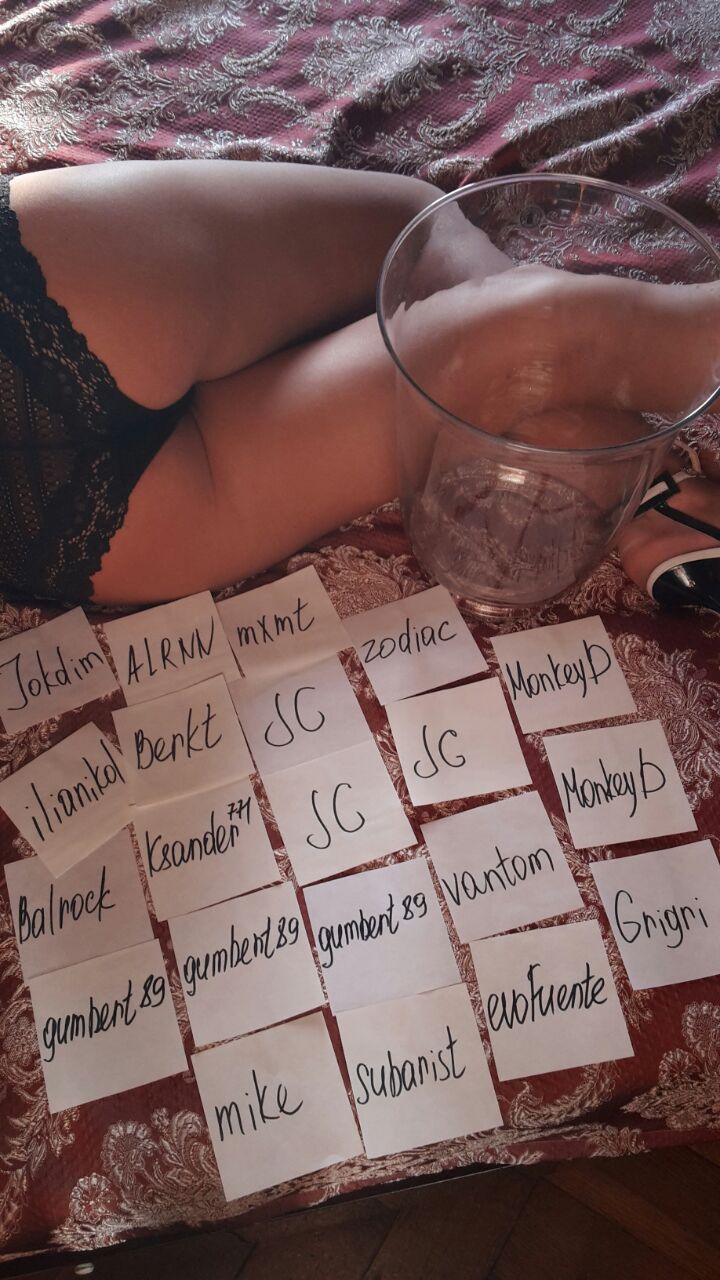 Jokdim
ALRNN
mxmt
zodiac
MonkeyD
ilianikol
Berkt
JC
JC
MonkeyD
Balrock
Ksander771
JC
vantom
Grigri
gumbert89
gumbert89
gumbert89
evofuente
mike
subarist